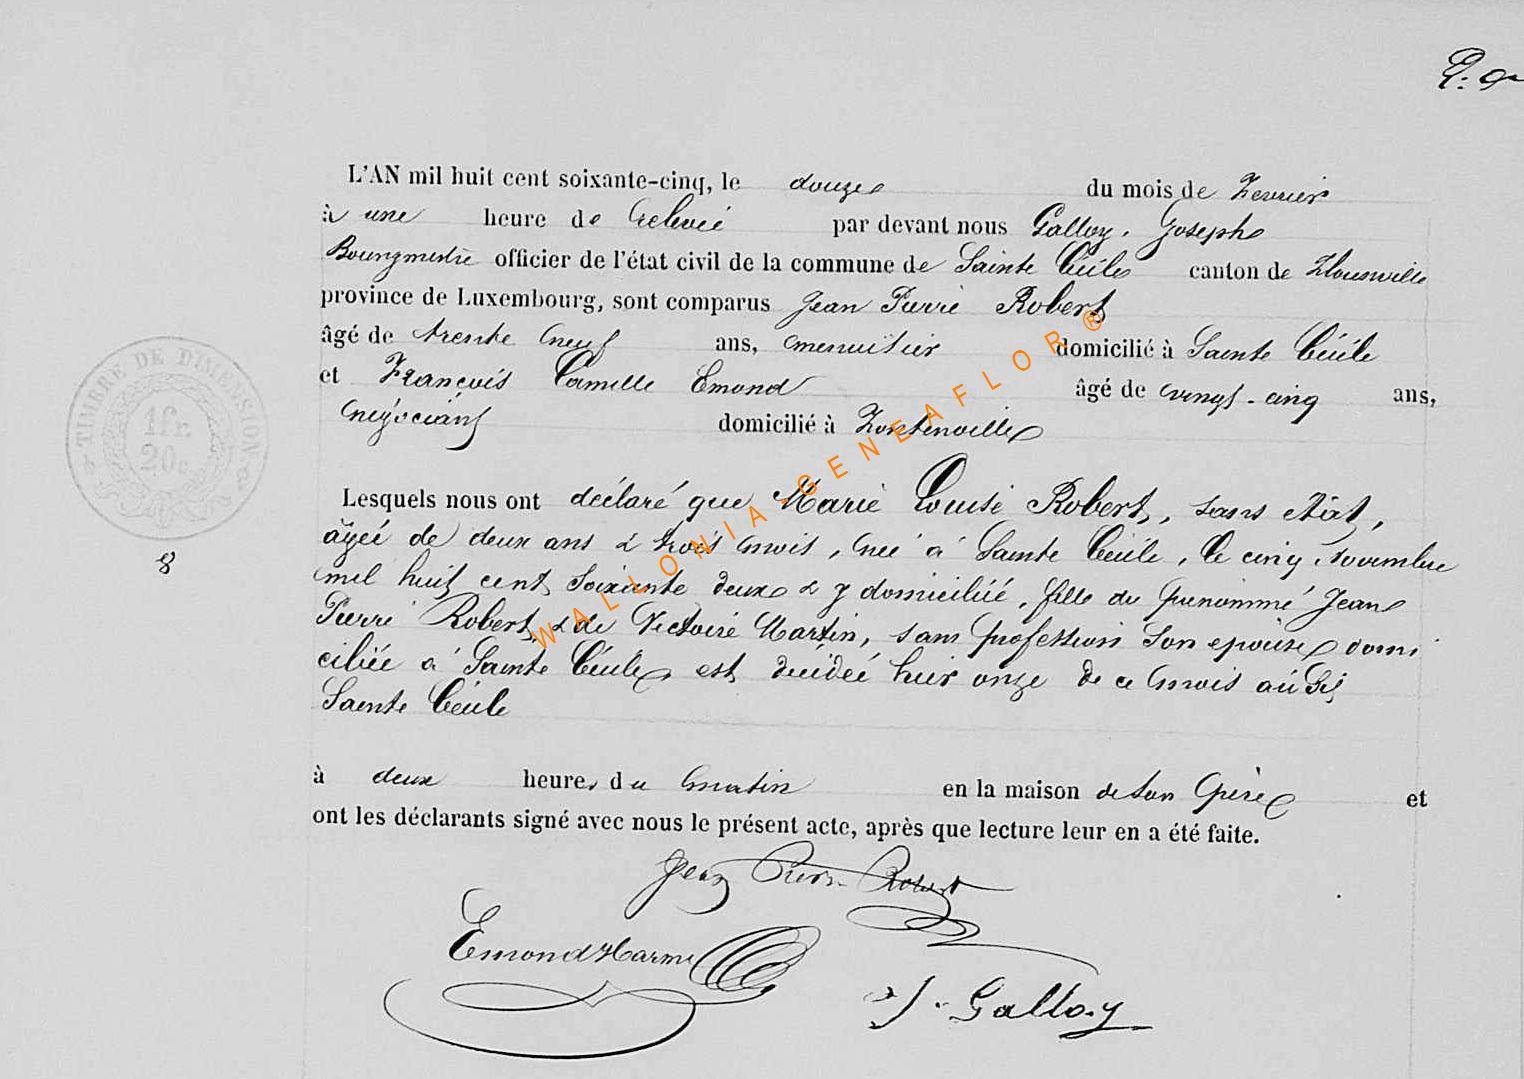 L'AN mil huit cent soixante-cinq, le douze du mois de Fevrier
à une heure de relevée par devant nous Galloy, Joseph
Bourgmestre officier de l'état civil de la commune de Sainte Cécile canton de Florenville
province de Luxembourg, sont comparus Jean Pierre Robert
âgé de trente neuf ans, menuisier domicilié à Sainte Cécile
et François Camille Emond âgé de vingt-cinq ans,
négociant domicilié à Fontenoille
Lesquels nous ont déclaré que Marie Louise Robert, sans état,
âgée de deux ans & trois mois, née à Sainte Cécile, le cinq Novembre
mil huit cent soixante deux & y domiciliée, fille du prénommé Jean
Pierre Robert & de Victoire Martin, sans profession son epouse domi
ciliée à Sainte Cécile, est décédée hier onze de ce mois au dit
Sainte Cécile
à deux heures du matin en la maison de son père et
ont les déclarants signé avec nous le présent acte, après que lecture leur en a été faite.
Jean Pierre Robert
Emond Harmel
J. Galloy
TIMBRE DE DIMENSION
1 fr.
20 c.
8
WALLONIA-GENEAFLOR®